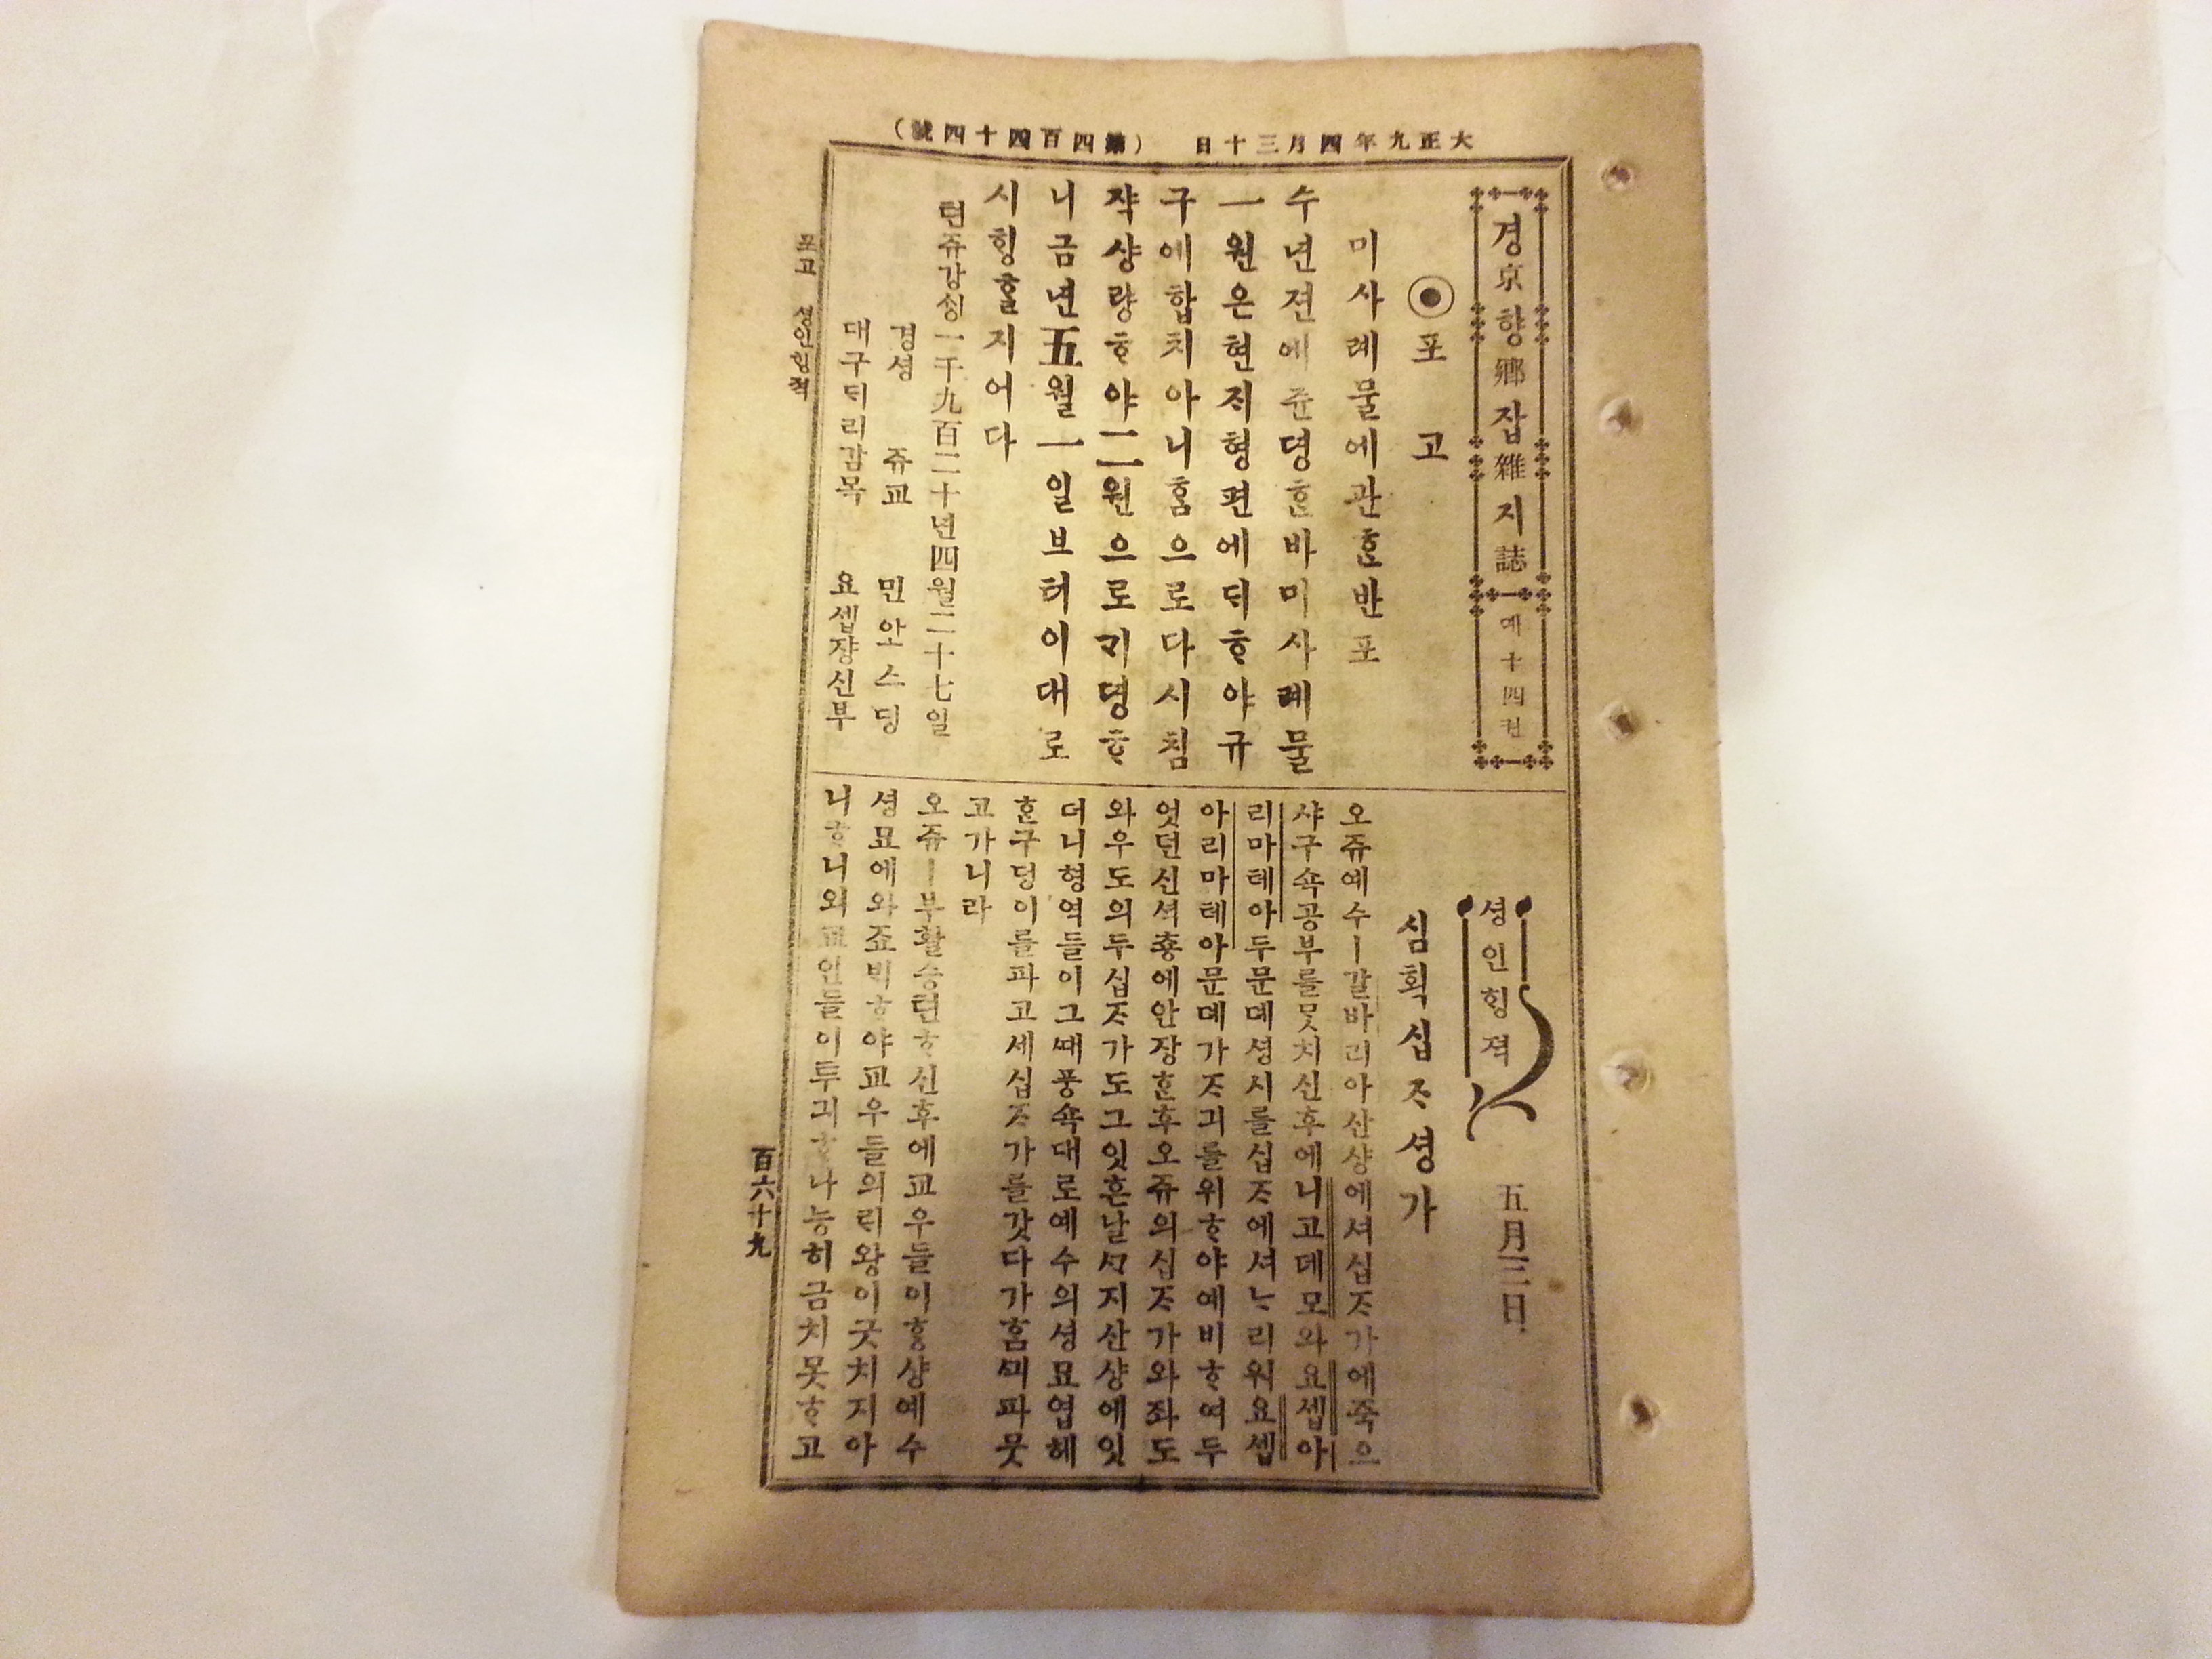 大正九年四月三十日
(第四百四十四號)
경京향鄕잡雜지誌
뎨十四권
◉포고
미사례물에관ᄒᆞᆫ반포
수년젼에쥰뎡ᄒᆞᆫ바미사례물
一원은현ᄌᆡ형편에ᄃᆡᄒᆞ야규
구에합치아니홈으로다시침
쟉샹량ᄒᆞ야二원으로ᄀᆡ뎡ᄒᆞ
니금년五월一일브터이대로
시ᄒᆡᆼᄒᆞᆯ지어다
텬쥬강ᄉᆡᆼ一千九百二十년四월二十七일
경셩 쥬교 민안스딩
대구ᄃᆡ리감목 요셉쟝신부
셩인ᄒᆡᆼ젹
五月三日
심획십ᄌᆞ셩가
오쥬예수ㅣ갈바리아산샹에셔십ᄌᆞ가에죽으
샤구쇽공부를ᄆᆞᆺ치신후에니고데모와요셉아
리마테아두문뎨셩시를십ᄌᆞ에셔ᄂᆞ리워요셉
아리마테아문뎨가ᄌᆞ긔를위ᄒᆞ야예비ᄒᆞ여두
엇던신셕춍에안장ᄒᆞᆫ후오쥬의십ᄌᆞ가와좌도
와우도의두십ᄌᆞ가도그잇흔날ᄭᆞ지산샹에잇
더니형역들이그ᄯᅢ풍쇽대로예수의셩묘엽헤
ᄒᆞᆫ구덩이를파고세십ᄌᆞ가를갓다가홈ᄭᅴ파뭇
고가니라
오쥬ㅣ부활승텬ᄒᆞ신후에교우들이ᄒᆞᆼ샹예수
셩묘에와죠ᄇᆡᄒᆞ야교우들의ᄅᆡ왕이긋치지아
니ᄒᆞ니외교인들이투긔ᄒᆞ나능히금치못ᄒᆞ고
포고 셩인ᄒᆡᆼ젹
百六十九